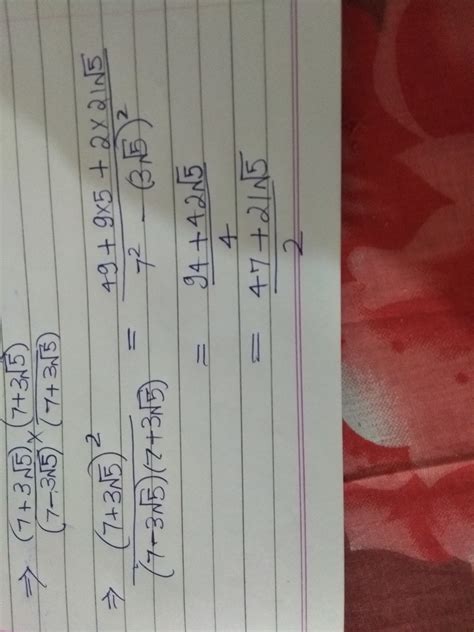 ⇒ (7+3√5)/(7-3√5) × (7+3√5)/(7+3√5)
⇒ (7+3√5)²/(7-3√5)(7+3√5) = 49+9×5+2×21√5/7² - (3√5)²
= 94+42√5/4
= 47+21√5/2